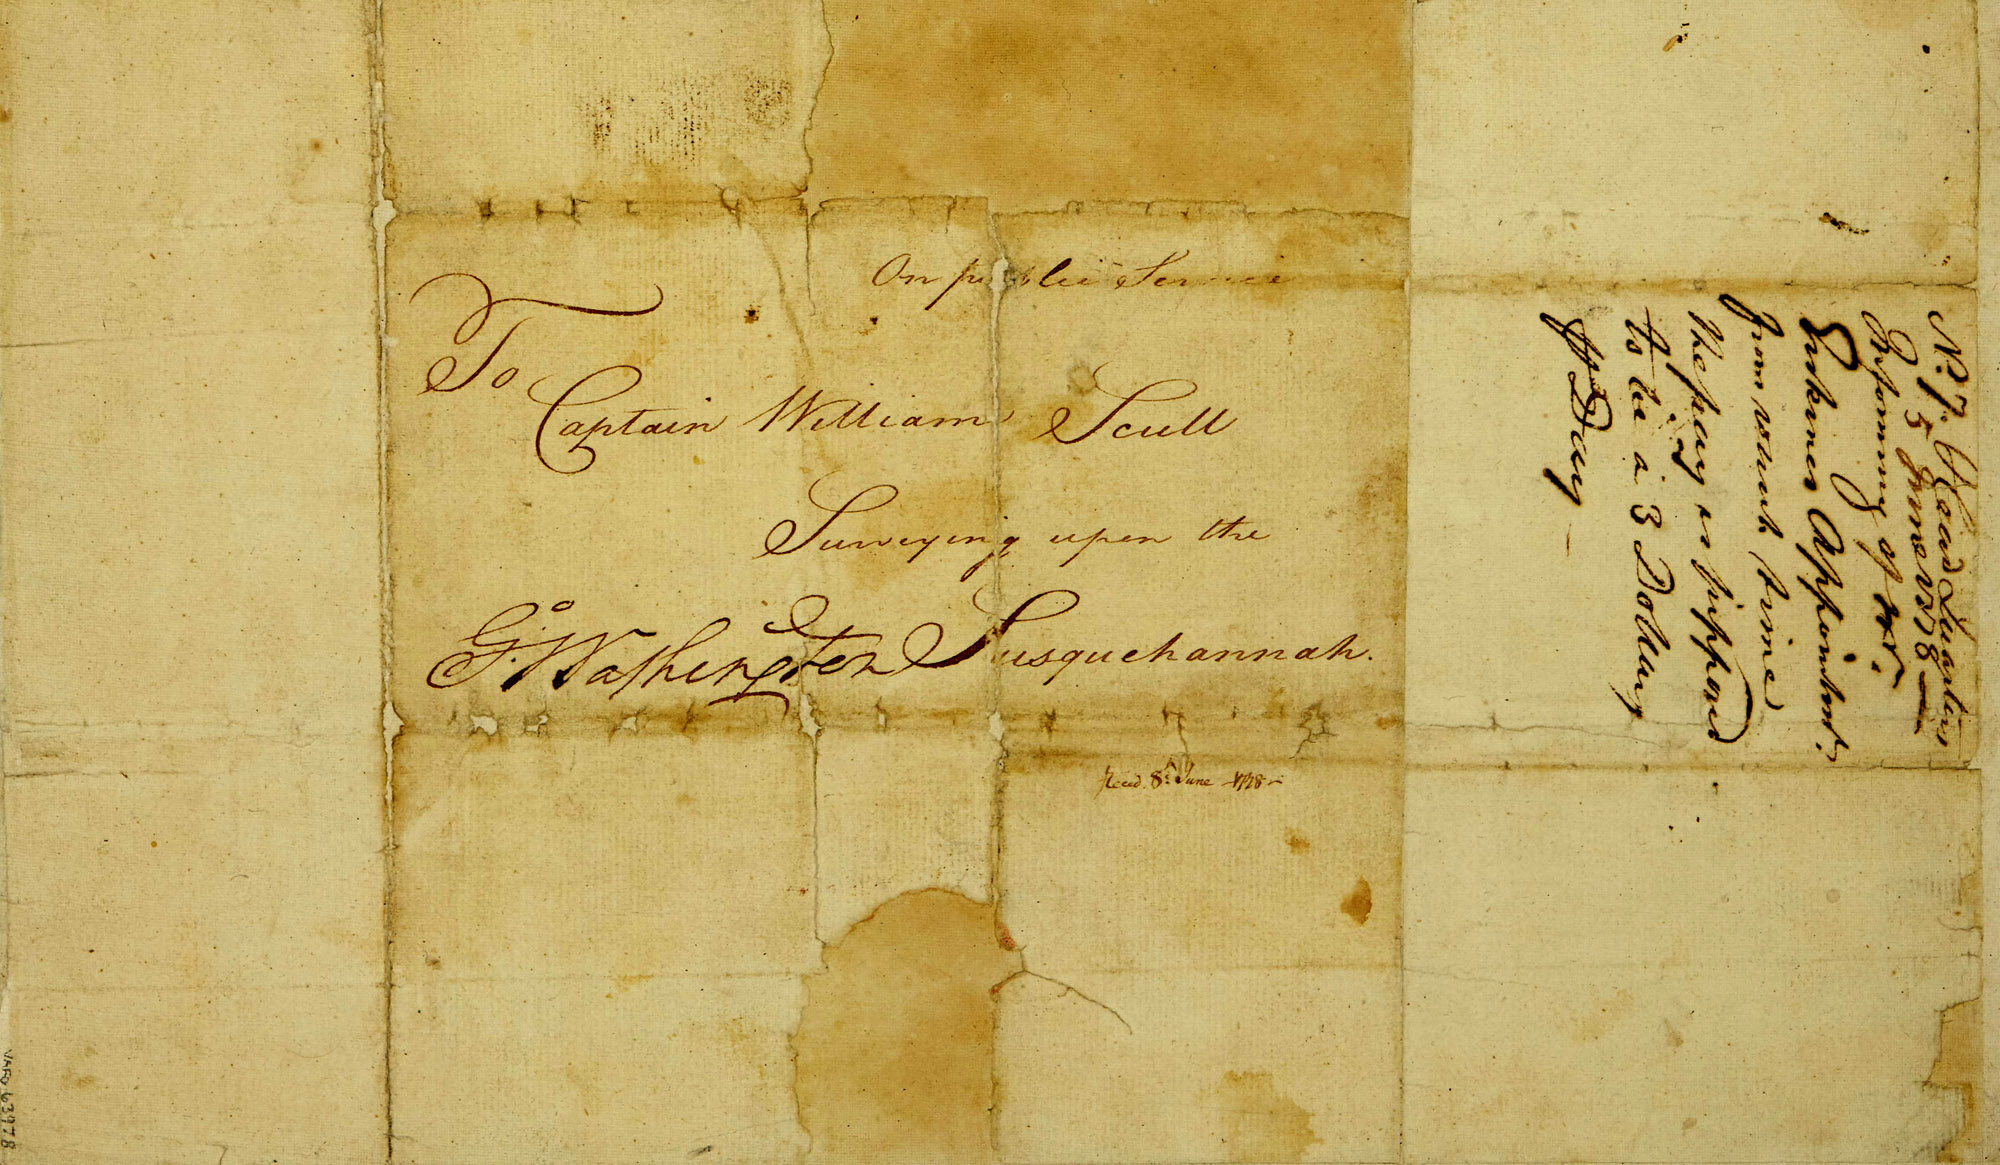 On public Service
To
Captain William Scull
Surveying upon the
Susquehannah.
Go. Washington
Recd. 8th June 1778
No. 7. Head Quarters
5 June 1778
Informing of Mr.
Erskines Appointmt.
from which time
the pay is supposed
to be a 3 Dollars
Day
VAFO 63978